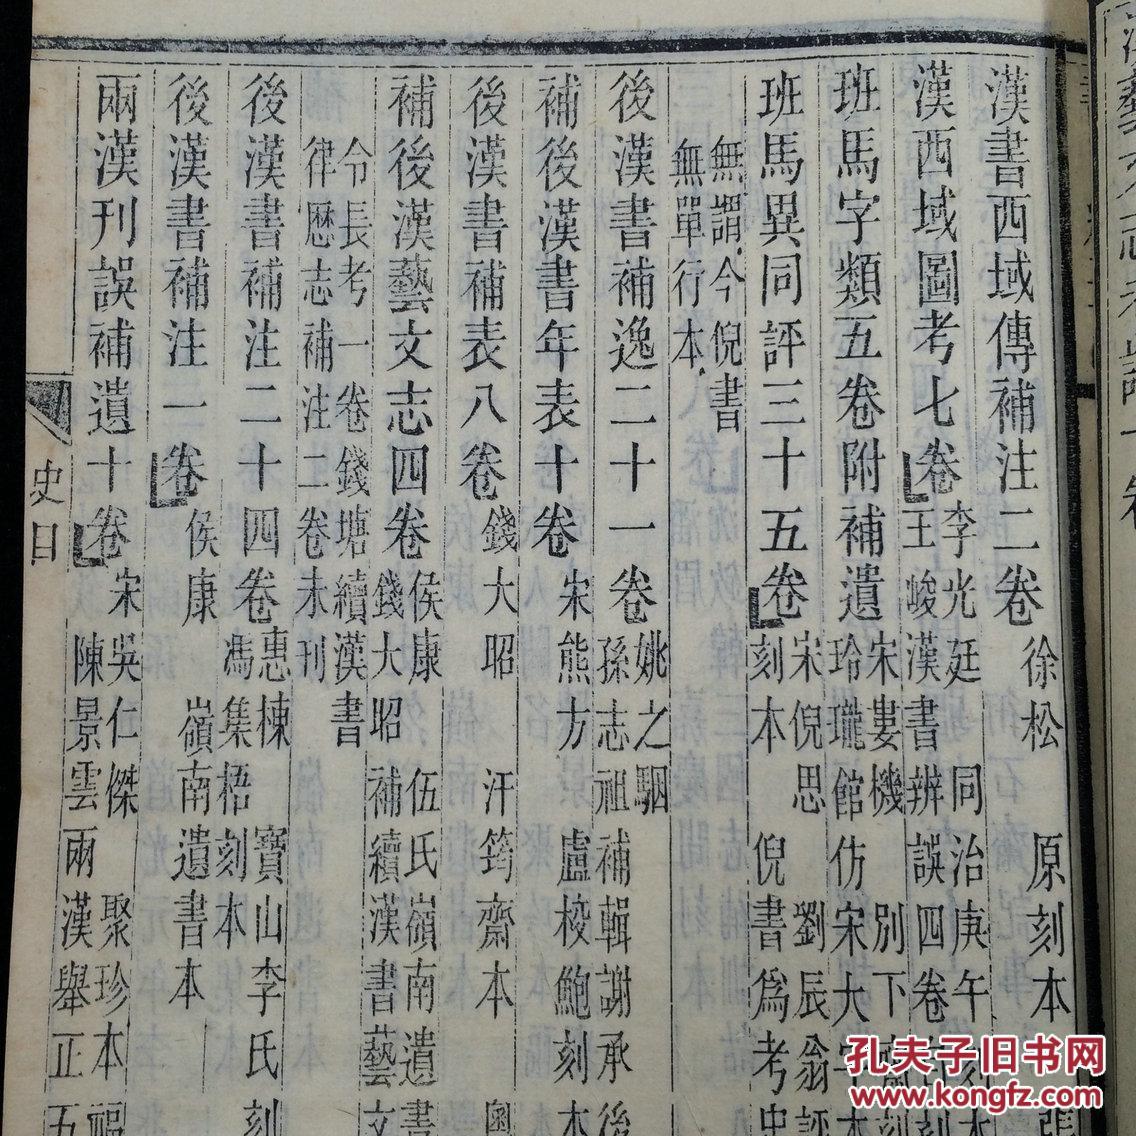 漢書西域傳補注二卷 徐松 原刻本
漢西域圖考七卷 李光廷 同治庚午刻本
王峻漢書辨誤四卷
班馬字類五卷附補遺 宋婁機 別下齋刻
玲瓏館仿宋大字本
班馬異同評三十五卷 宋倪思 劉辰翁評
刻本 倪書爲考史
無謂今倪書
無單行本
後漢書補逸二十一卷 姚之駰
孫志祖補輯謝承後
補後漢書年表十卷 宋熊方 盧校鮑刻本
後漢書補表八卷 錢大昭 汗筠齋本 粵
補後漢藝文志四卷 侯康 伍氏嶺南遺書
錢大昭 補續漢書藝文
令長考一卷錢塘續漢書
律厯志補注二卷未刊
後漢書補注二十四卷 惠棟 寶山李氏刻
馮集梧刻本
後漢書補注一卷 侯康 嶺南遺書本
兩漢刊誤補遺十卷 宋吳仁傑 聚珍本 福
陳景雲兩漢舉正五
史目
孔夫子旧书网
www.kongfz.com